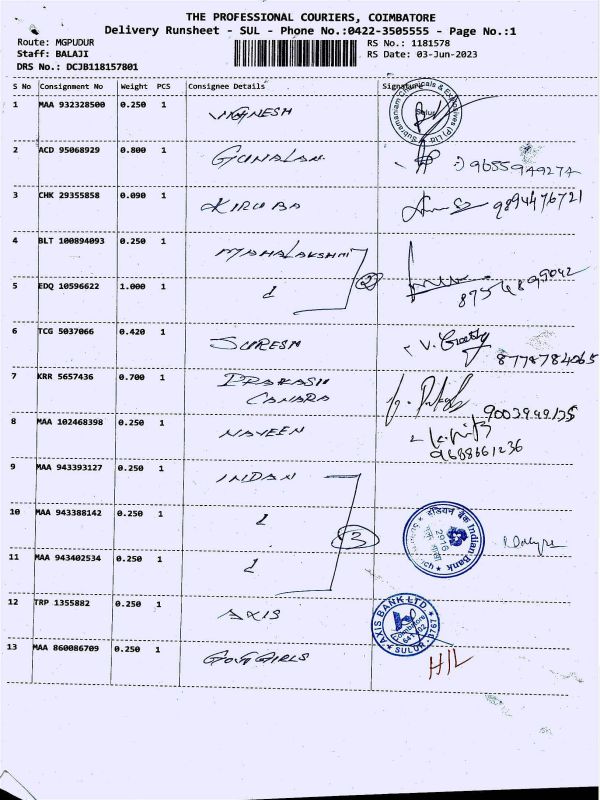 THE PROFESSIONAL COURIERS, COIMBATORE
Delivery Runsheet - SUL - Phone No.:0422-3505555 - Page No.:1
Route: MGPUDUR RS No.: 1181578
Staff: BALAJI RS Date: 03-Jun-2023
DRS No.: DCJB118157801
S No Consignment No Weight PCS Consignee Details Signature
1 MAA 932328500 0.250 1 VIGNESH
Sulur
2 ACD 95068929 0.800 1 GUNALAN 9655949274
3 CHK 29355858 0.090 1 KIRUBA 9894476721
4 BLT 100894093 0.250 1 MAHALAKSHMI
5 EDQ 10596622 1.000 1 2
6 TCG 5037066 0.420 1 SURESH V. 8778784065
7 KRR 5657436 0.700 1 PRAKASH
CANARA 9003949135
8 MAA 102468398 0.250 1 NAVEEN
9688661236
9 MAA 943393127 0.250 1 INDAN
10 MAA 943388142 0.250 1 3
इंडियन बैंक Indian Bank
2916
11 MAA 943402534 0.250 1
12 TRP 1355882 0.250 1 AXIS
AXIS BANK LTD
Coimbatore
641 402
SULUR
13 MAA 860086709 0.250 1 GOVT GIRLS H/L